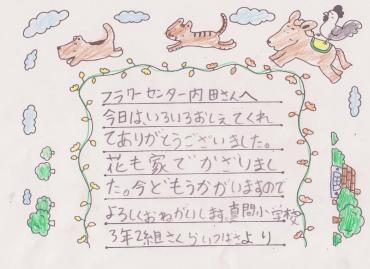 フラワーセンター内田さんへ
今日は、いろいろおしえてくれ
てありがとうございました。
花も家でかざりまし
た。今どもうかがいますので
よろしくおねがいします。真間小学校
3年2組さくらいつばさより